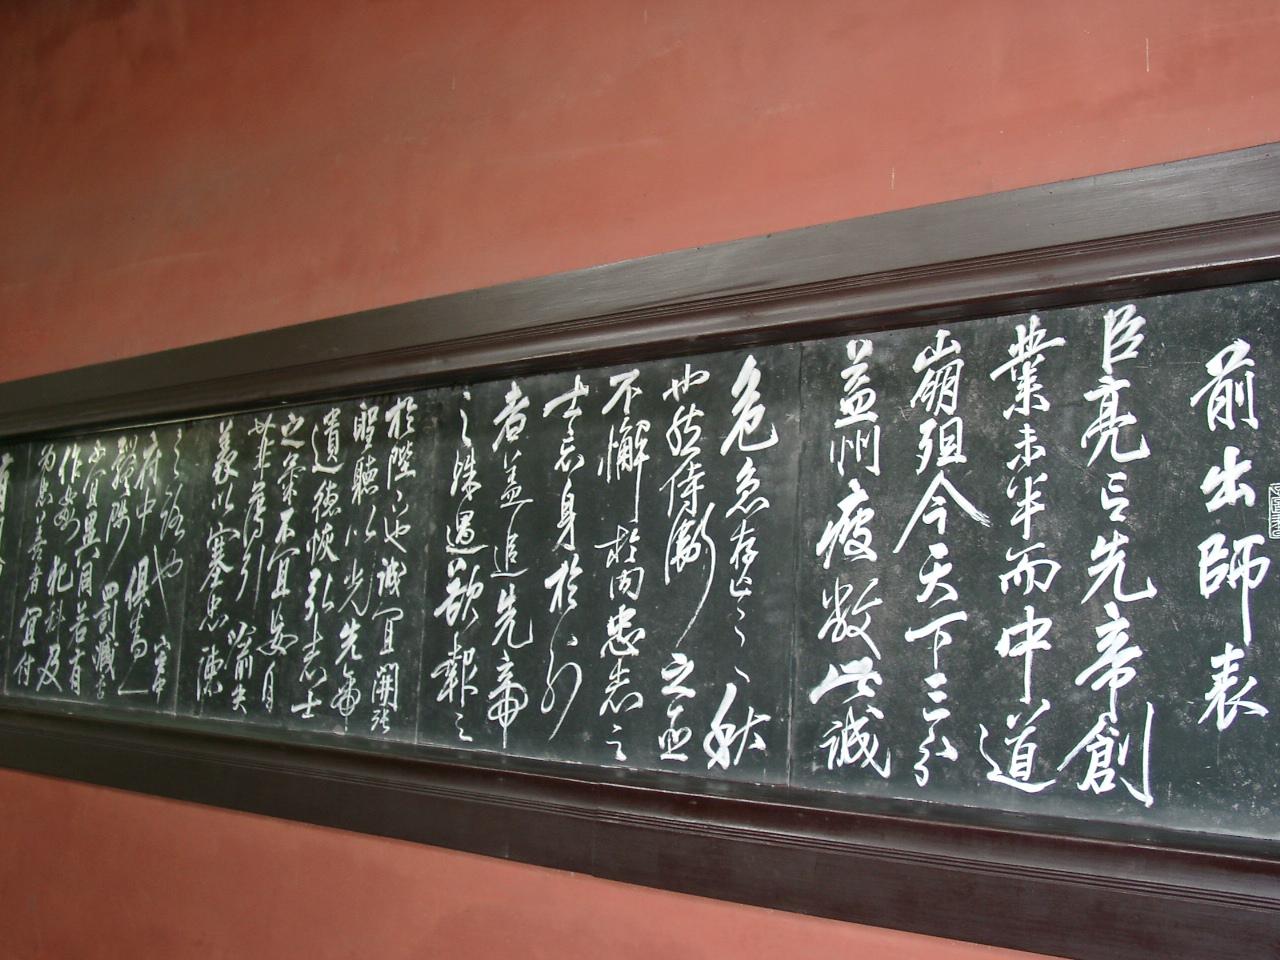 前出師表
臣亮言先帝創
業未半而中道
崩殂今天下三分
益州疲敝此誠
危急存亡之秋
也然侍衛之臣
不懈於内忠志之
士忘身於外
者蓋追先帝
之殊遇欲報之
於陛下也誠宜開張
聖聽以光先帝
遺德恢弘志士
之氣不宜妄自
菲薄引喻失
義以塞忠諫
之路也宮中
府中俱為一
體陟罰臧否
不宜異同若有
作姦犯科及
為忠善者宜付
有司